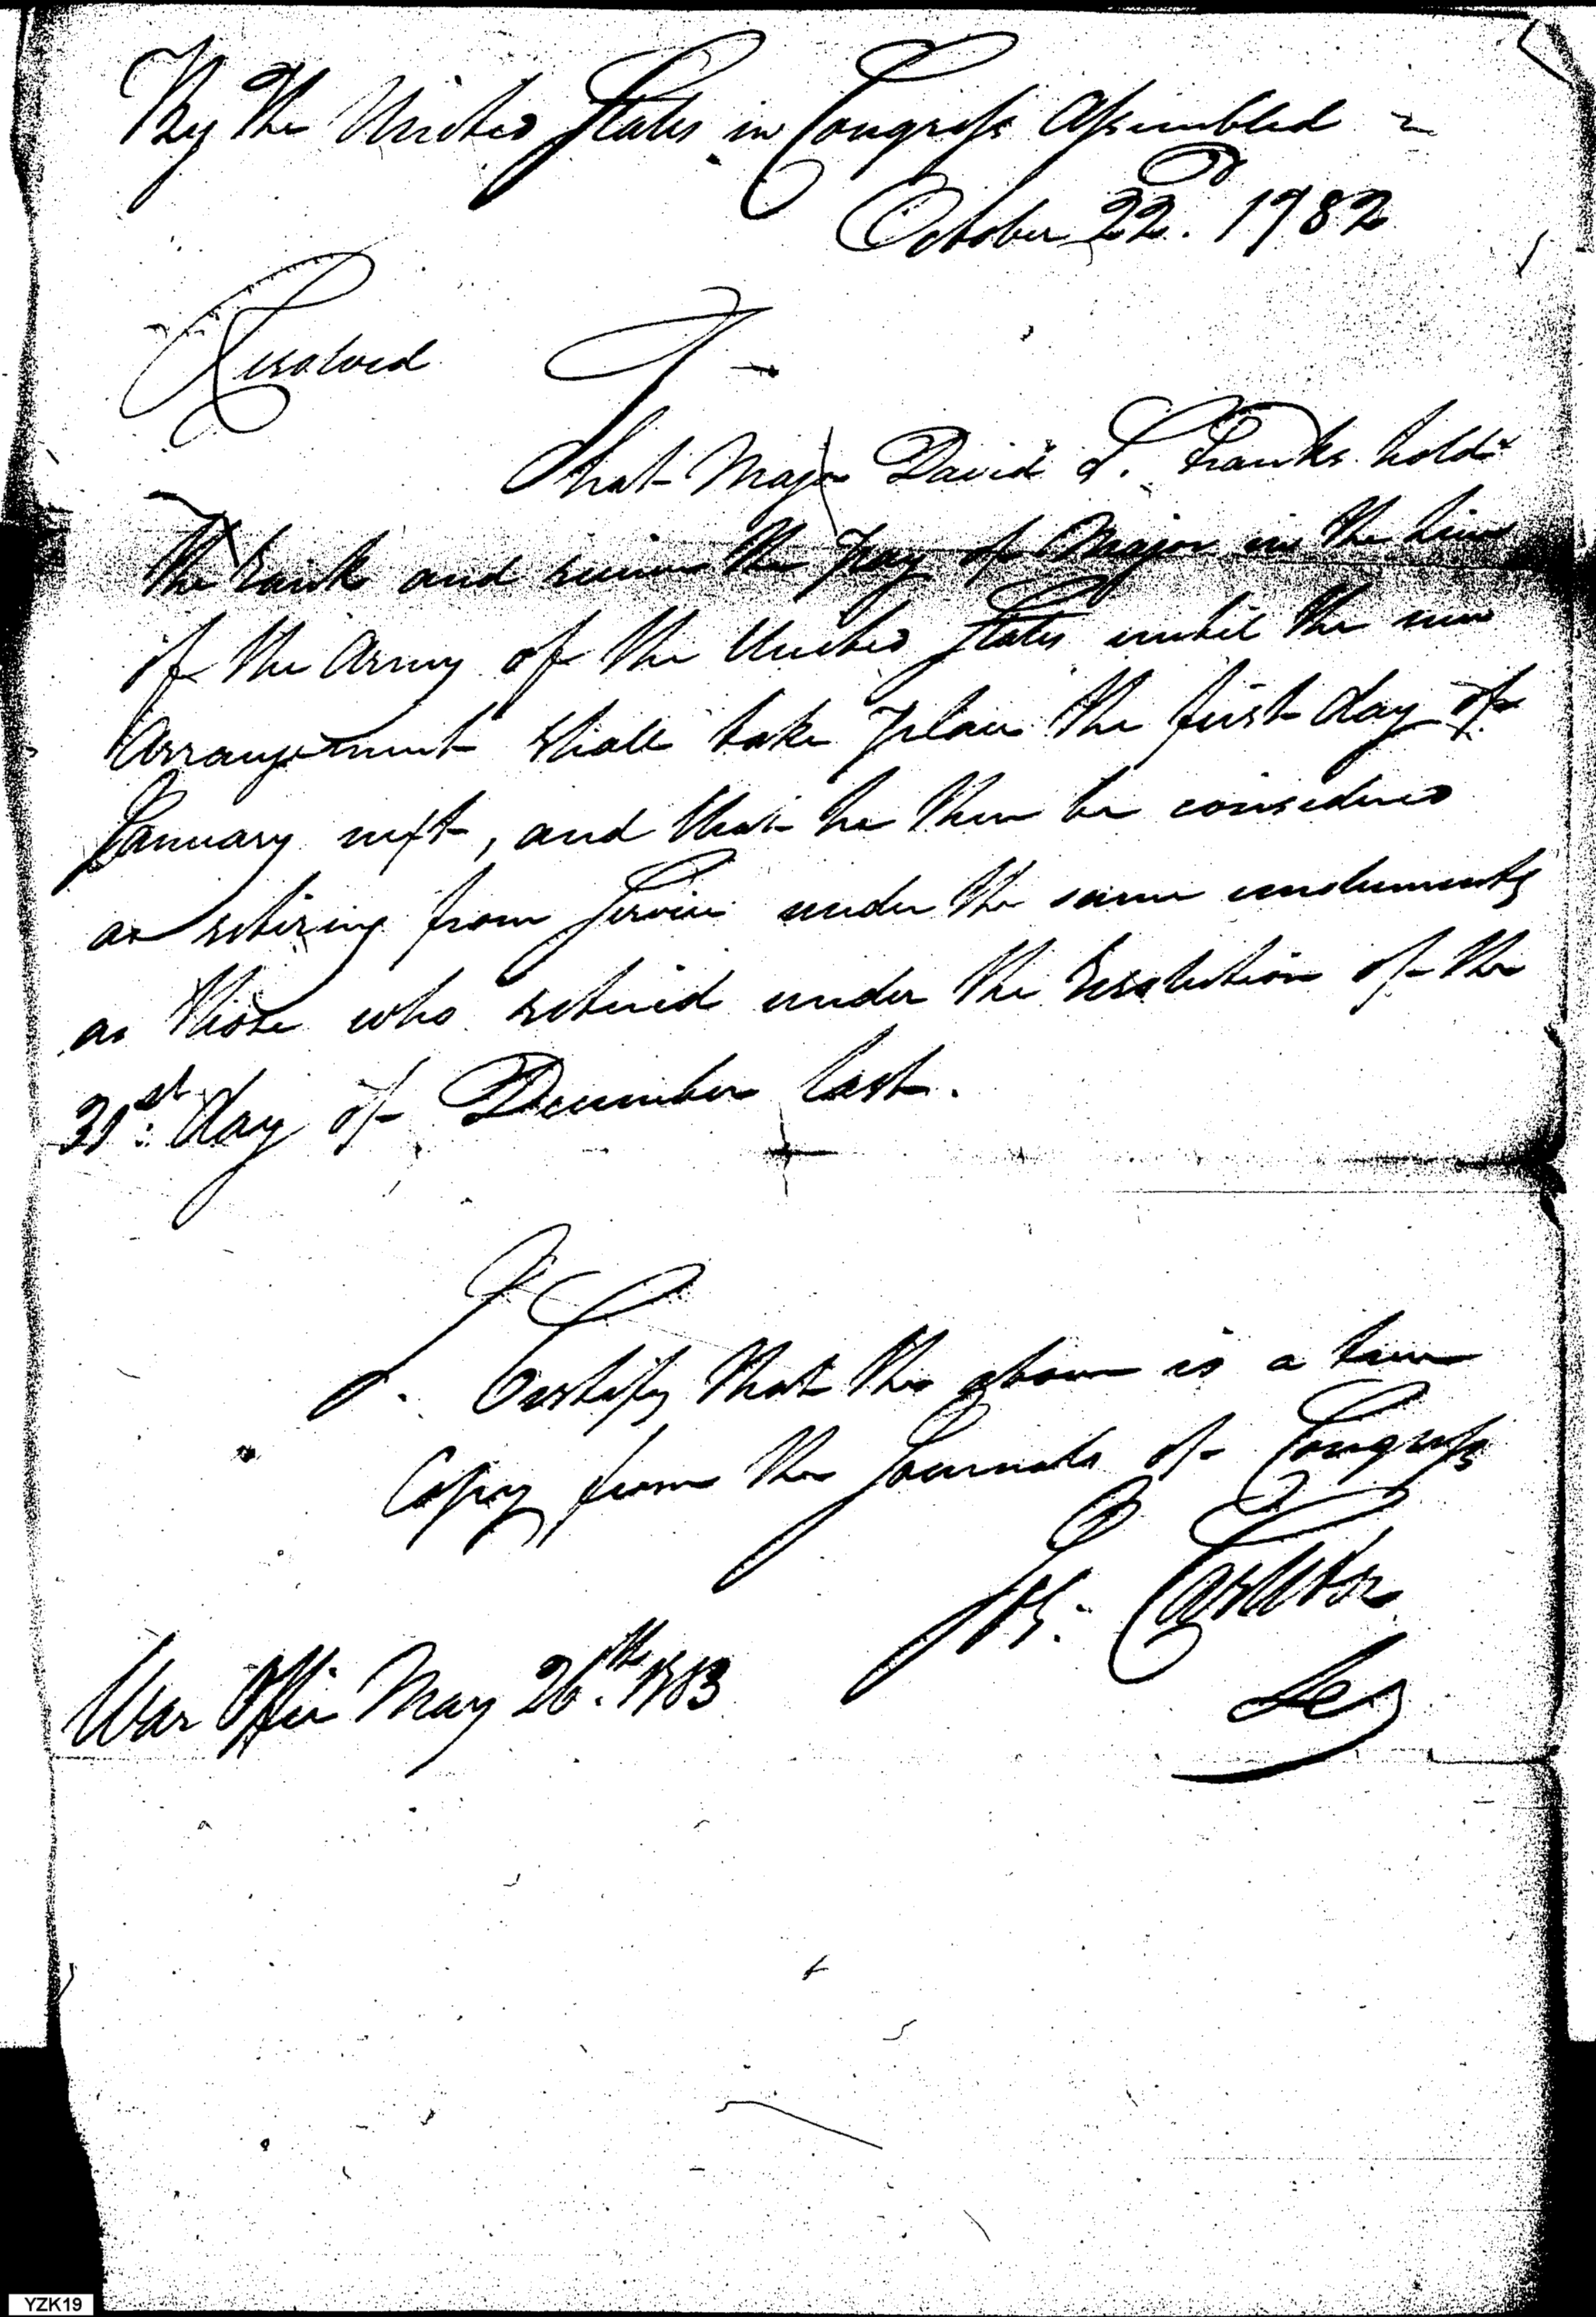 By the United States in Congress Assembled
October 22d. 1782
Resolved
That Major David S. Franks hold
the rank and receive the pay of Major in the line
of the Army of the United States until the new
Arrangement shall take place the first day of
January next, and that he then be considered
as retiring from Service under the same emoluments
as those who retired under the resolution of the
31st. day of December last.
I Certify that the above is a true
Copy from the Journals of Congress
Jos: Carleton
Secy
War Office May 26th. 1783
YZK19